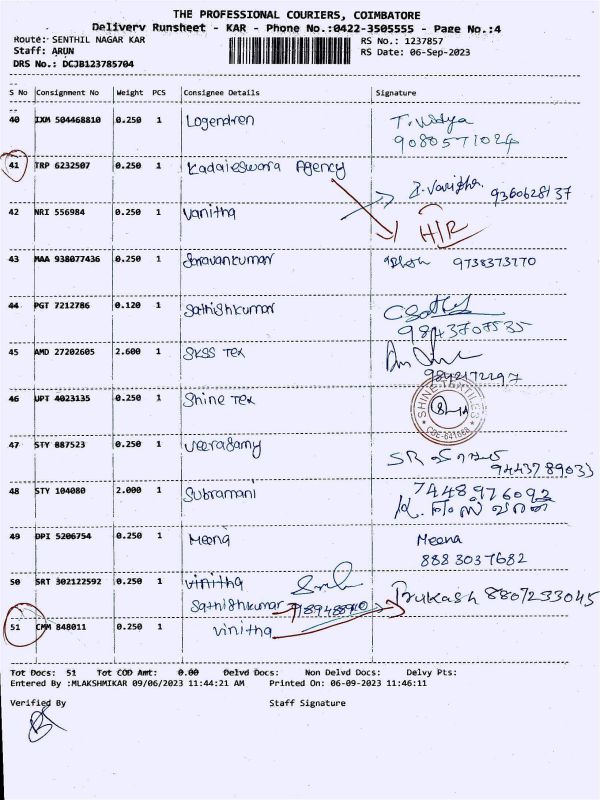 THE PROFESSIONAL COURIERS, COIMBATORE
Delivery Runsheet - KAR - Phone No.:0422-3505555 - Page No.:4
Route: SENTHIL NAGAR KAR RS No.: 1237857
Staff: ARUN RS Date: 06-Sep-2023
DRS No.: DCJB123785704
S No Consignment No Weight PCS Consignee Details Signature
40 IXM 504468810 0.250 1 Logendren T. Vidya
9080571024
41 TRP 6232507 0.250 1 Kadaieswara Agency
9360628137
42 NRI 556984 0.250 1 Vanitha H/R
43 MAA 938077436 0.250 1 Saravankumar 9738373770
44 PGT 7212786 0.120 1 Sathishkumar
9843707535
45 AMD 27202605 2.600 1 SKSS Tex
9842172297
46 UPT 4023135 0.250 1 Shine Tex SHINE TEXTILES
CBE-641668
47 STY 887523 0.250 1 Veerasamy SR
9443789033
48 STY 104080 2.000 1 Subramani 7448976092
49 DPI 5206754 0.250 1 Meena Meena
8883037682
50 SRT 302122592 0.250 1 Vinitha
Sathishkumar Prukash 8807233045
51 CMM 848011 0.250 1 Vinitha
Tot Docs: 51 Tot COD Amt: 0.00 Delvd Docs: Non Delvd Docs: Delvy Pts:
Entered By :MLAKSHMIKAR 09/06/2023 11:44:21 AM Printed On: 06-09-2023 11:46:11
Verified By Staff Signature